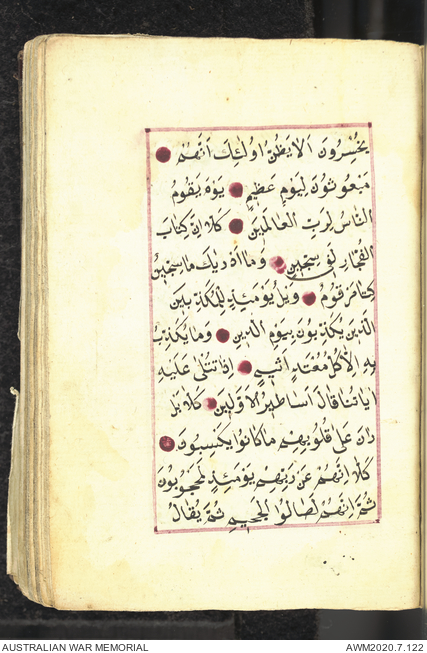 يُخْسِرُونَ اَلَا يَظُنُّ اُولٰئِكَ اَنَّهُمْ
مَبْعُوثُونَ لِيَوْمٍ عَظِيمٍ يَوْمَ يَقُومُ
النَّاسُ لِرَبِّ الْعَالَمِينَ كَلَّا اِنَّ كِتَابَ
الْفُجَّارِ لَفِى سِجِّينٍ وَمَا اَدْرٰيكَ مَا سِجِّينٌ
كِتَابٌ مَرْقُومٌ وَيْلٌ يَوْمَئِذٍ لِلْمُكَذِّبِينَ
الَّذِينَ يُكَذِّبُونَ بِيَوْمِ الدِّينِ وَمَا يُكَذِّبُ
بِهِ اِلَّا كُلُّ مُعْتَدٍ اَثِيمٍ اِذَا تُتْلٰى عَلَيْهِ
اٰيَاتُنَا قَالَ اَسَاطِيرُ الْاَوَّلِينَ كَلَّا بَلْ
رَانَ عَلٰى قُلُوبِهِمْ مَا كَانُوا يَكْسِبُونَ
كَلَّا اِنَّهُمْ عَنْ رَبِّهِمْ يَوْمَئِذٍ لَمَحْجُوبُونَ
ثُمَّ اِنَّهُمْ لَصَالُوا الْجَحِيمِ ثُمَّ يُقَالُ
AUSTRALIAN WAR MEMORIAL AWM2020.7.122